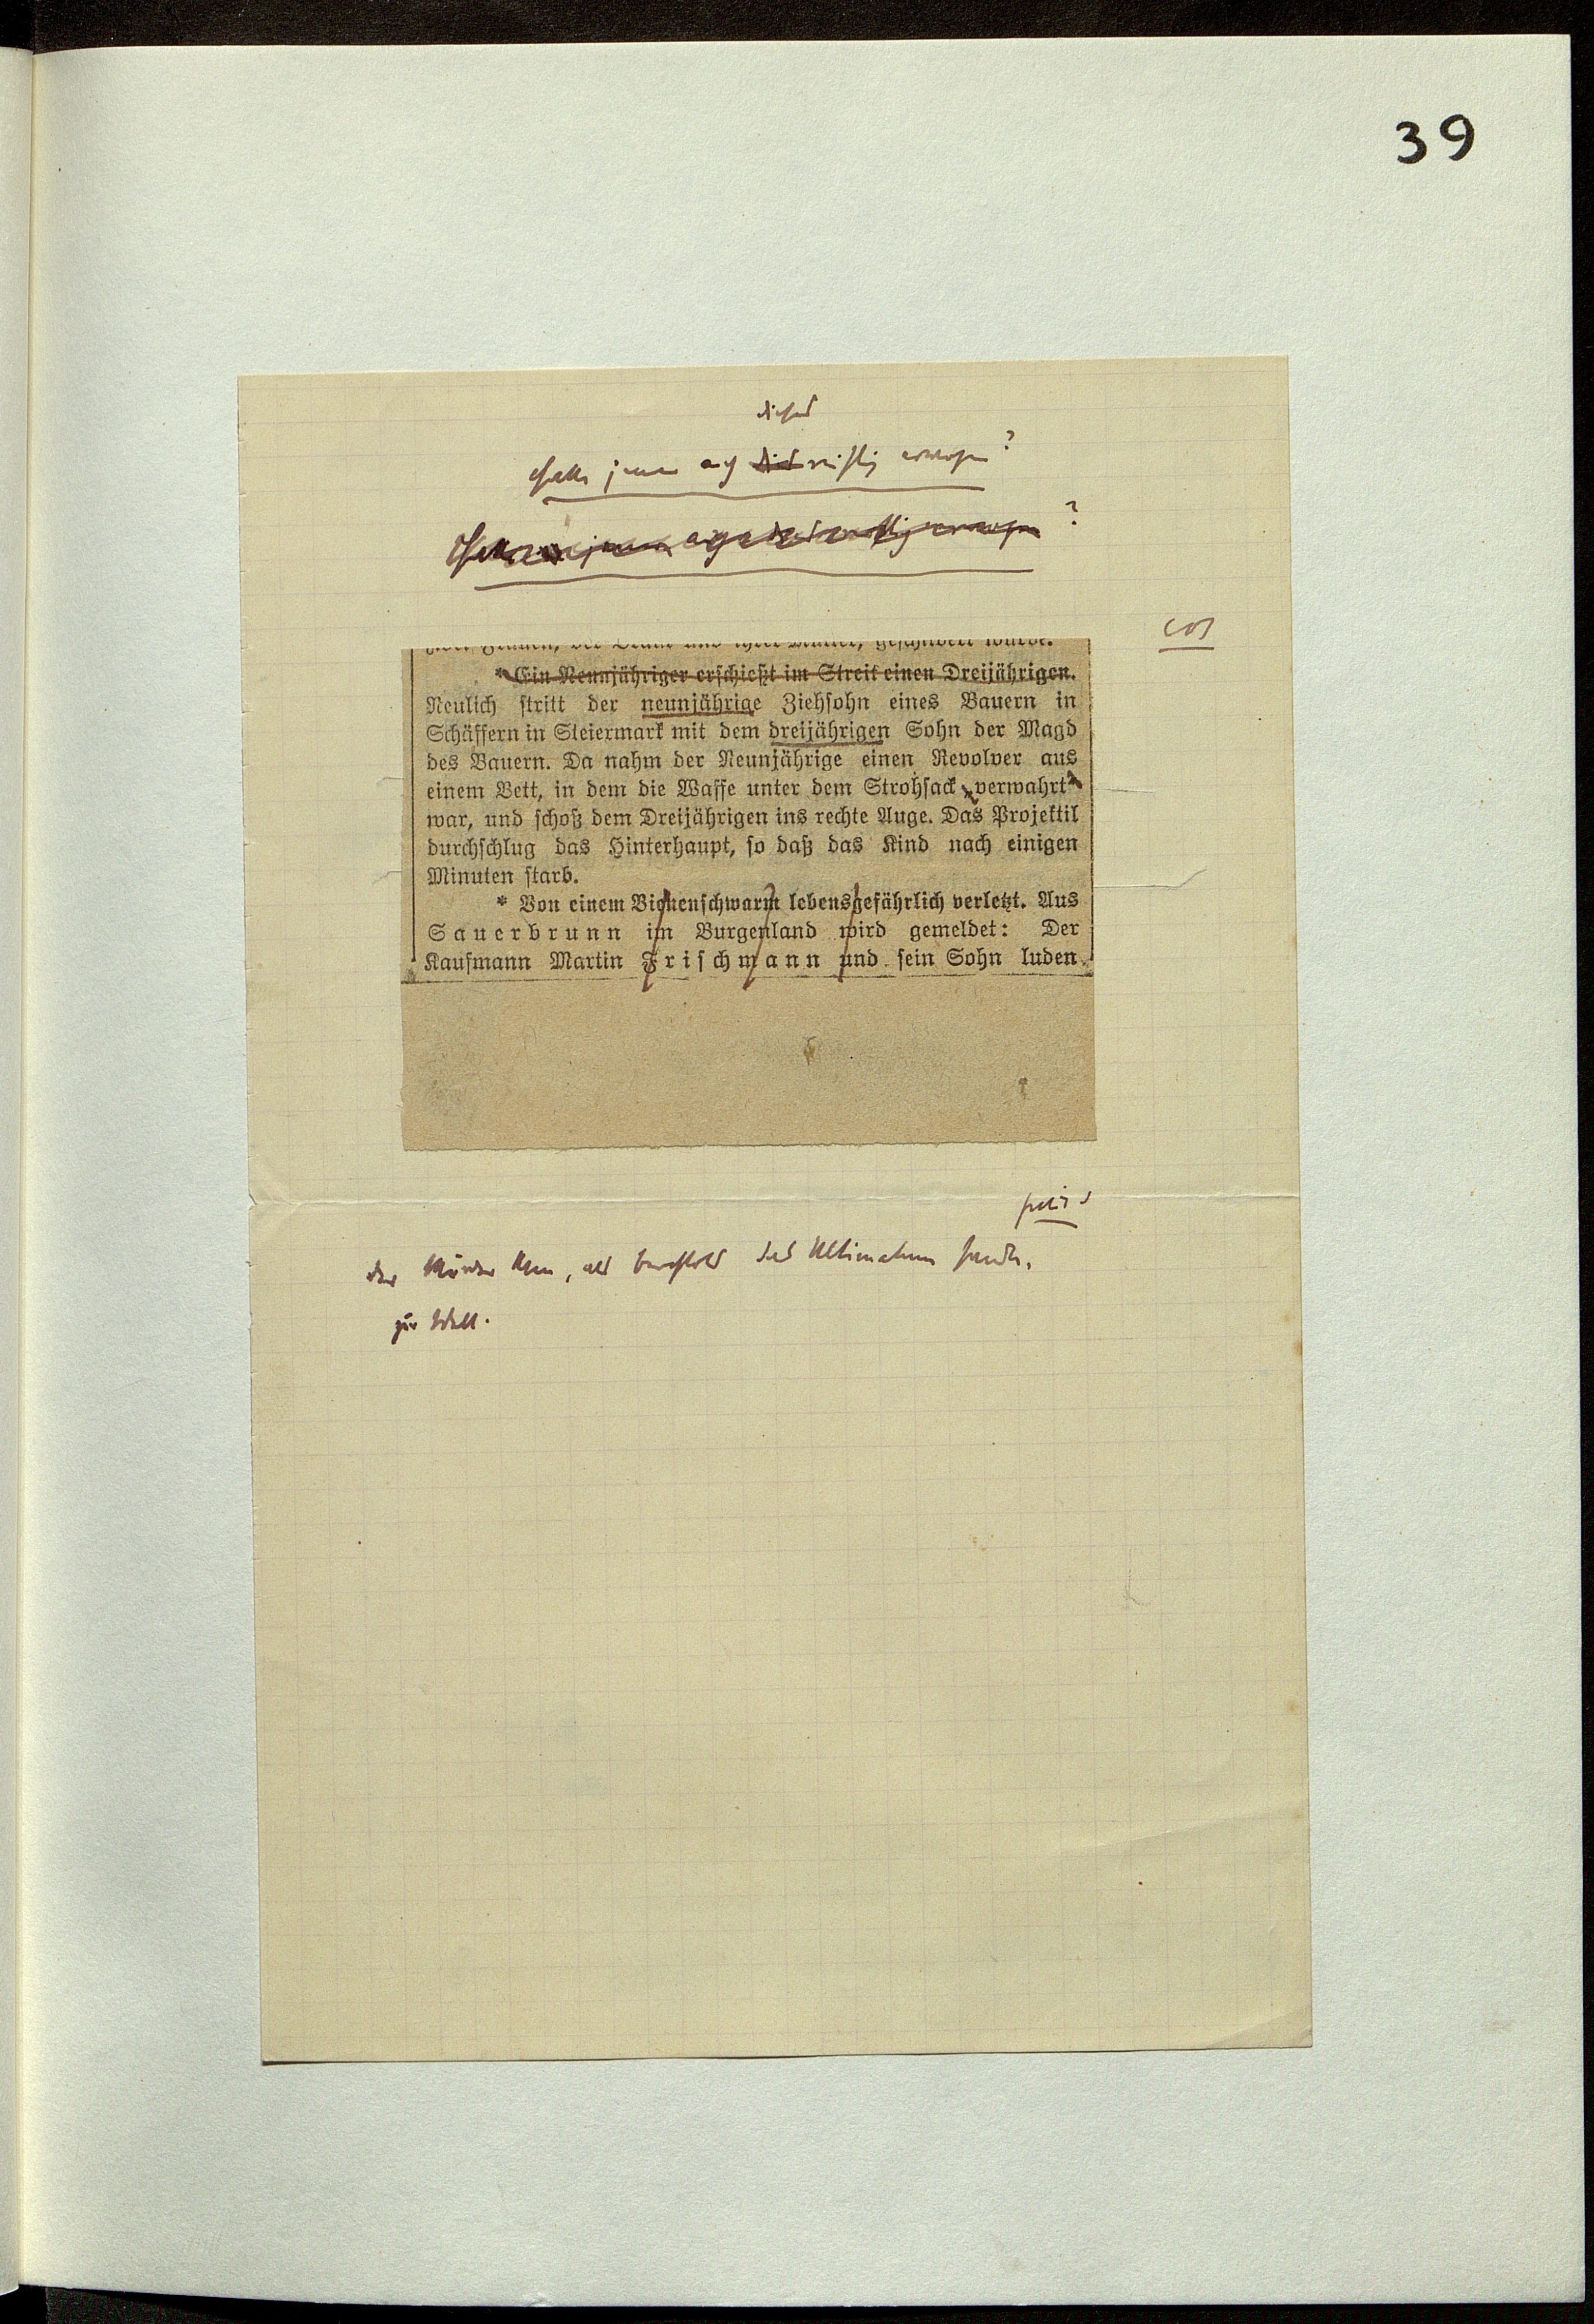 39
dieses
Hatte jener auch das reiflich erwogen?
?
* Ein Neunjähriger erschießt im Streit einen Dreijährigen.
Neulich stritt der neunjährige Ziehsohn eines Bauern in
Schäffern in Steiermark mit dem dreijährigen Sohn der Magd
des Bauern. Da nahm der Neunjährige einen Revolver aus
einem Bett, in dem die Waffe unter dem Strohsack verwahrt
war, und schoß dem Dreijährigen ins rechte Auge. Das Projektil
durchschlug das Hinterhaupt, so daß das Kind nach einigen
Minuten starb.
* Von einem Bienenschwarm lebensgefährlich verletzt. Aus
Sauerbrunn im Burgenland wird gemeldet: Der
Kaufmann Martin Frischmann und sein Sohn luden
Der Mörder kam, als Berchtold das Ultimatum sandte,
zur Welt.